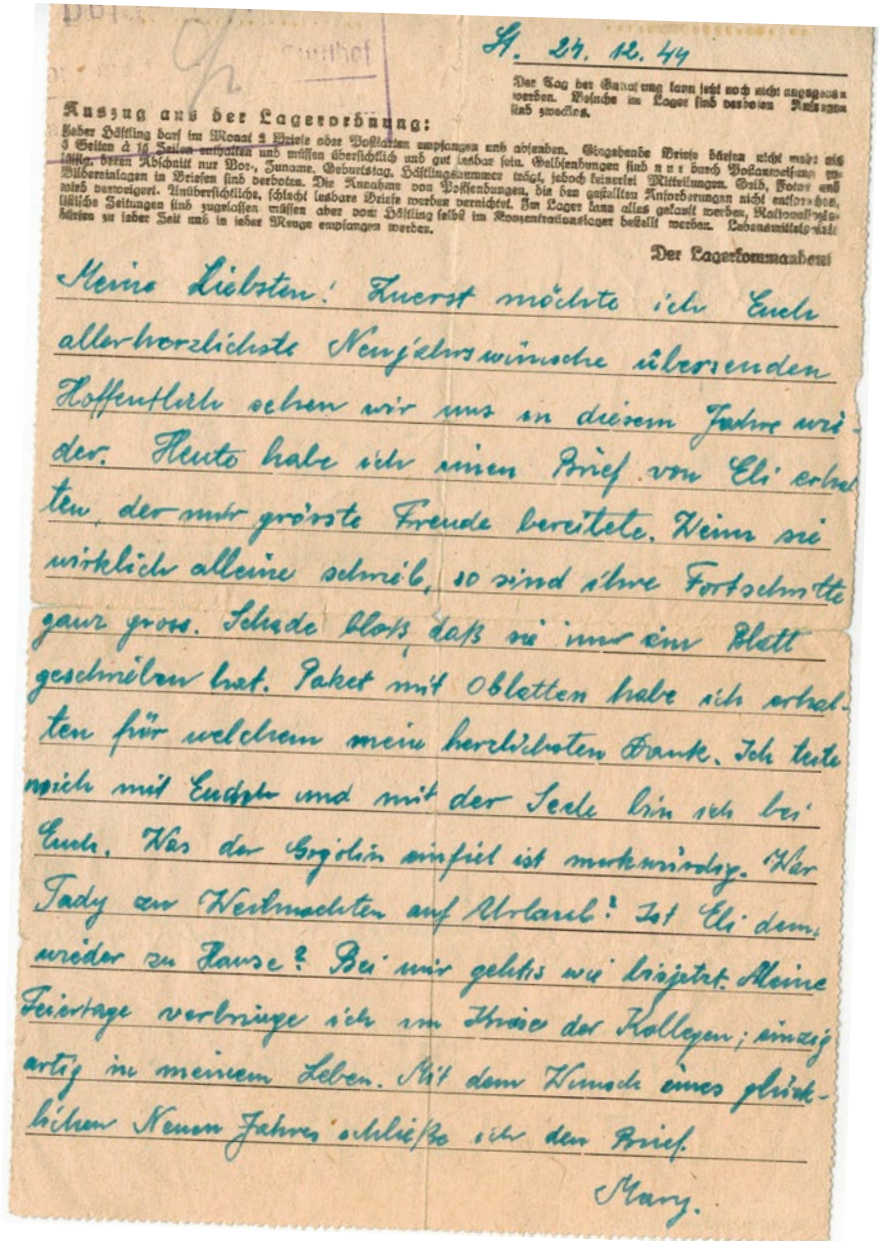 St. 27. 12. 44
Der Tag der Entlassung kann jetzt noch nicht angegeben
werden. Besuche im Lager sind verboten. Anfragen
sind zwecklos.
Auszug aus der Lagerordnung:
Jeder Häftling darf im Monat 2 Briefe oder Postkarten empfangen und absenden. Eingehende Briefe dürfen nicht mehr als
4 Seiten à 15 Zeilen enthalten und müssen übersichtlich und gut lesbar sein. Geldsendungen sind nur durch Postanweisung zu-
lässig, deren Abschnitt nur Vor-, Zuname, Geburtstag, Häftlingsnummer trägt, jedoch keinerlei Mitteilungen. Geld, Fotos und
Bildereinlagen in Briefen sind verboten. Die Annahme von Postsendungen, die den gestellten Anforderungen nicht entsprechen,
wird verweigert. Unübersichtliche, schlecht lesbare Briefe werden vernichtet. Im Lager kann alles gekauft werden. Nationalsozia-
listische Zeitungen sind zugelassen müssen aber vom Häftling selbst im Konzentrationslager bestellt werden. Lebensmittelpakete
dürfen zu jeder Zeit und in jeder Menge empfangen werden.
Der Lagerkommandant
Meine Liebsten! Zuerst möchte ich Euch
allerherzlichste Neujahrswünsche übersenden
Hoffentlich sehen wir uns in diesem Jahre wie-
der. Heute habe ich einen Brief von Eli erhal
ten, der mir grösste Freude bereitete. Wenn sie
wirklich alleine schrieb, so sind ihre Fortschritte
ganz gross. Schade bloß, daß sie nur ein Blatt
geschrieben hat. Paket mit Oblatten habe ich erhal-
ten für welchem mein herzlichsten Dank. Ich teile
mich mit Euch und mit der Seele bin ich bei
Euch. Was der Gogolin einfiel ist merkwürdig. War
Tady zu Weihnachten auf Urlaub? Ist Eli denn
wieder zu Hause? Bei mir gehts wie bisjetzt. Meine
Feiertage verbringe ich im Kreise der Kollegen; einzig
artig in meinem Leben. Mit dem Wunsch eines glück-
lichen Neuen Jahres schließe ich den Brief.
Mary.